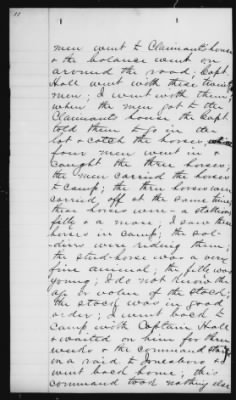 11
men went to Claimants house
& the balance went on
around the road; Capt
Hall went with these twenty
men; I went with them,
when the men got to the
Claimants house the Capt.
told them to go in the
lot & catch the horses
four men went in &
Caught the three horses;
the men carried the horses
to Camp; the three horses were
carried off at the same time;
these horses were a stallion
filly & a mare; I saw these
horses in camp; the sol-
diers were riding them;
the stud-horse was a very
fine animal; the filly was
young; I do not know the
age or value of the stock;
the stock was in good
order; I went back to
Camp with Captain Hall
& waited on him for three
weeks & the command started
on a raid to Jonesboro so I
went back home; this
command took nothing else